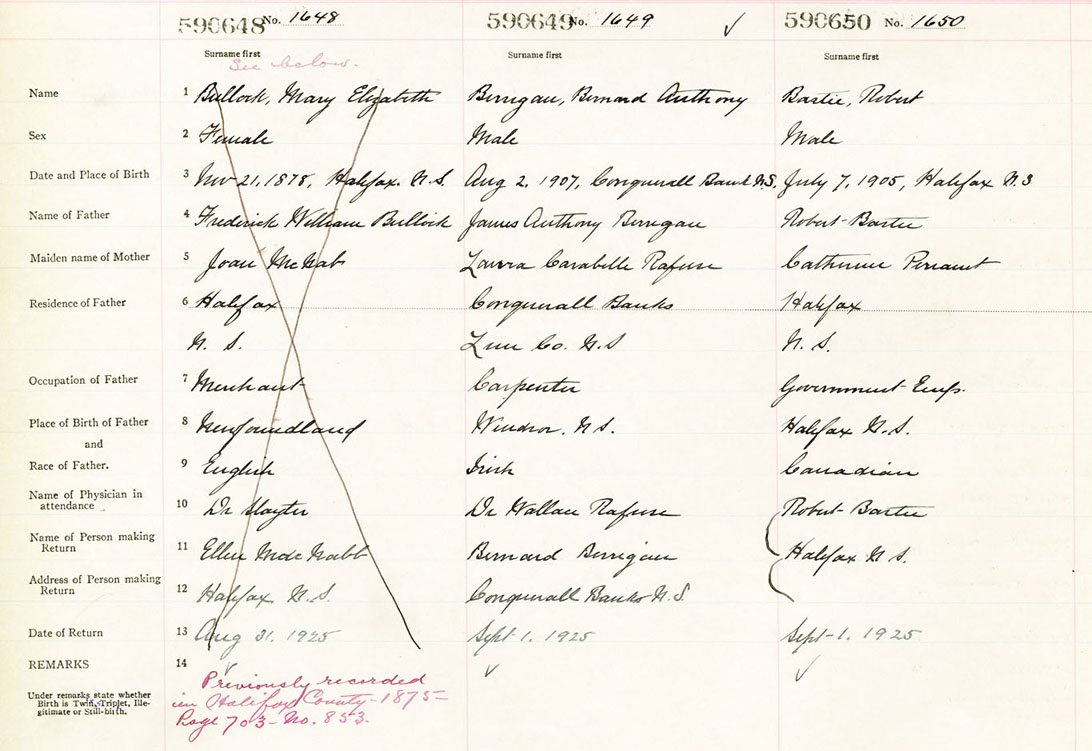 590648 No. 1648 590649 No. 1649 590650 No. 1650
Surname first Surname first Surname first
See below.
Name 1 Bullock, Mary Elizabeth Berrigau, Bernard Anthony Bastie, Robert
Sex 2 Female Male Male
Date and Place of Birth 3 Nov 21, 1875, Halifax. N.S. Aug 2, 1907, Conquerall Bank N.S. July 7, 1905, Halifax N.S
Name of Father 4 Frederick William Bullock James Anthony Berrigau Robert Bastie
Maiden name of Mother 5 Joan McNab Laura Carabelle Rafuse Catherine
Residence of Father 6 Halifax Conquerall Banks Halifax
N. S. Lun Co. N.S N. S.
Occupation of Father 7 Merchant Carpenter Government Emp.
Place of Birth of Father 8 Newfoundland Windsor. N S. Halifax N.S.
and
Race of Father. 9 English Irish Canadian
Name of Physician in
attendance 10 Dr Slayter Dr Wallace Rafuse Robert Bastie
Name of Person making
Return 11 Ellen Mac Nabb Bernard Berrigau Halifax N S.
Address of Person making
Return 12 Halifax N.S. Conquerall Banks N.S
Date of Return 13 Aug 31. 1925 Sept 1. 1925 Sept-1. 1925
REMARKS 14
Previously recorded
in Halifax County-1875-
Page 703-No. 853.
Under remarks state whether
Birth is Twin, Triplet, Ille-
gitimate or Still-birth.